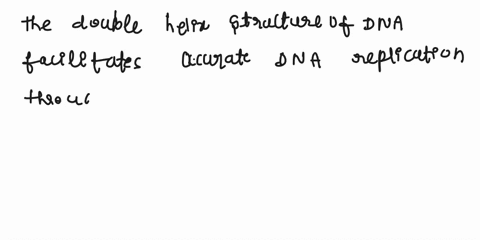 the double helix structure of DNA
facilitates accurate DNA replication